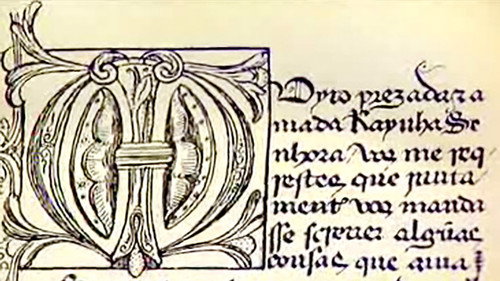 MUyto prezada z a
mada Raynha Se
nhora. Vos me req
restes que iunta
ment vos manda
sse screuer algũas
cousas que auia